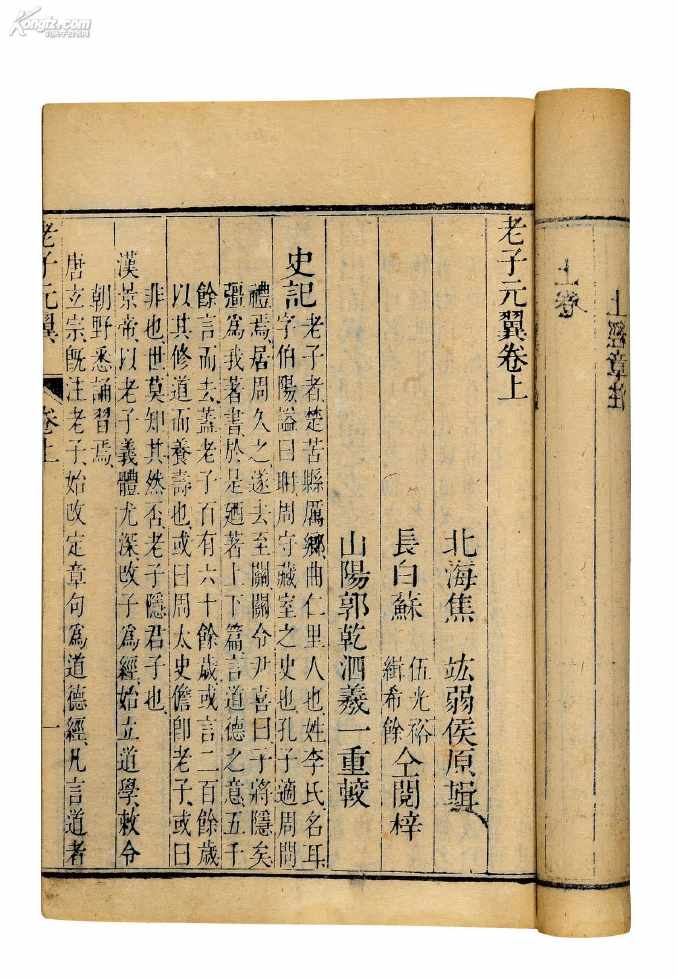 上經章注
上卷
老子元翼卷上
北海焦 竑弱侯原輯
長白蘇 伍光裕 緝希餘 仝閱梓
山陽郭乾泗羲一重較
史記老子者楚苦縣厲鄉曲仁里人也姓李氏名耳
字伯陽謚曰耼周守藏室之史也孔子適周問
禮焉居周久之遂去至關關令尹喜曰子將隱矣
彊為我著書於是廼著上下篇言道德之意五千
餘言而去蓋老子百有六十餘歲或言二百餘歲
以其修道而養壽也或曰周太史儋卽老子或曰
非也世莫知其然否老子隱君子也
漢景帝以老子義體尤深改子為經始立道學敕令
朝野悉誦習焉
唐玄宗旣注老子始改定章句為道德經凡言道者
老子元翼 卷上 一
Kongfz.com